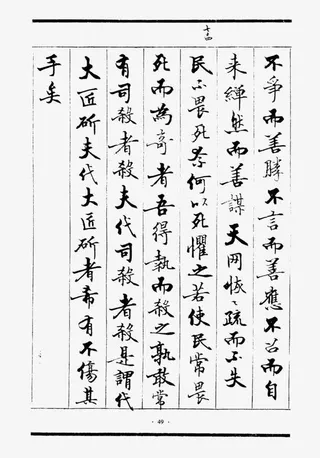 十四
不爭而善勝不言而善應不召而自
来繟然而善謀天网恢〻疏而不失
民不畏死奈何以死懼之若使民常畏
死而為奇者吾得執而殺之孰敢常
有司殺者殺夫代司殺者殺是謂代
大匠斫夫代大匠斫者希有不傷其
手矣
·49·